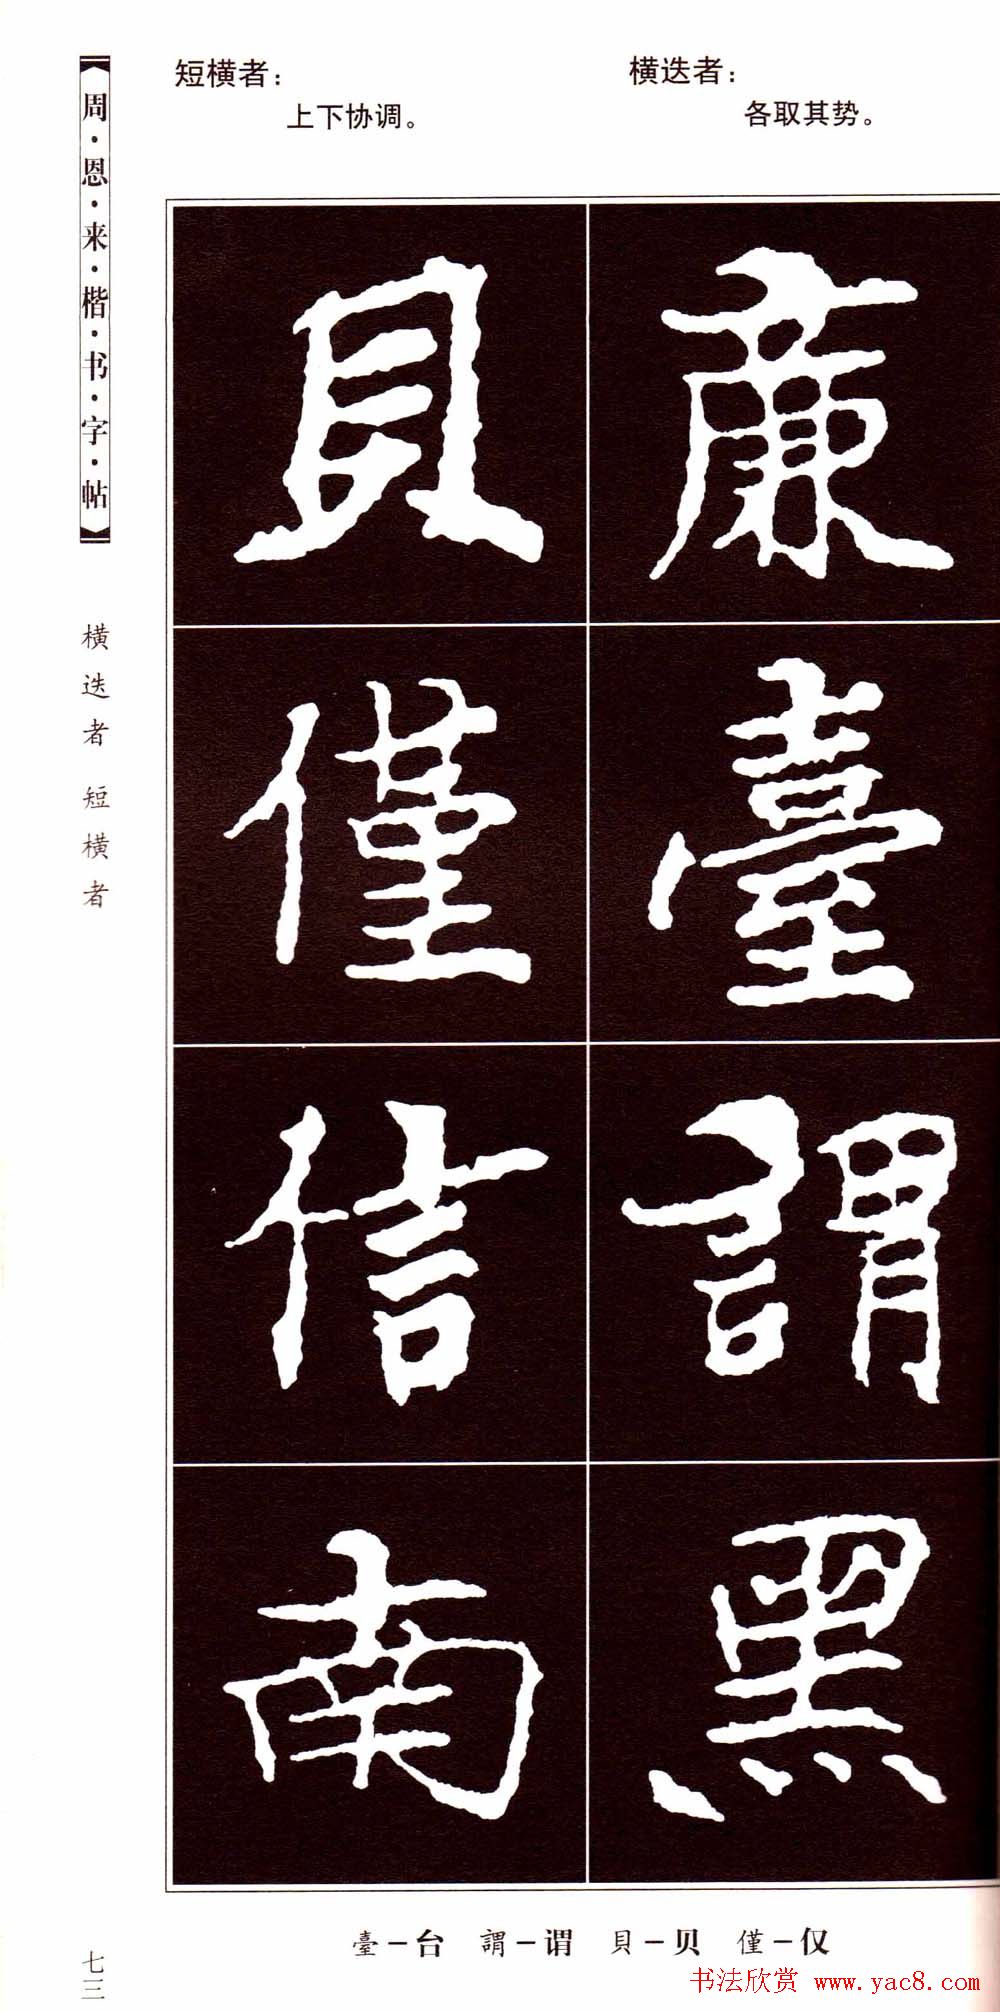 周·恩·来·楷·书·字·帖
横迭者 短横者
七三
横迭者：
各取其势。
短横者：
上下协调。
廉
臺
謂
黑
貝
僅
信
南
臺－台 謂－谓 貝－贝 僅－仅
书法欣赏 www.yac8.com